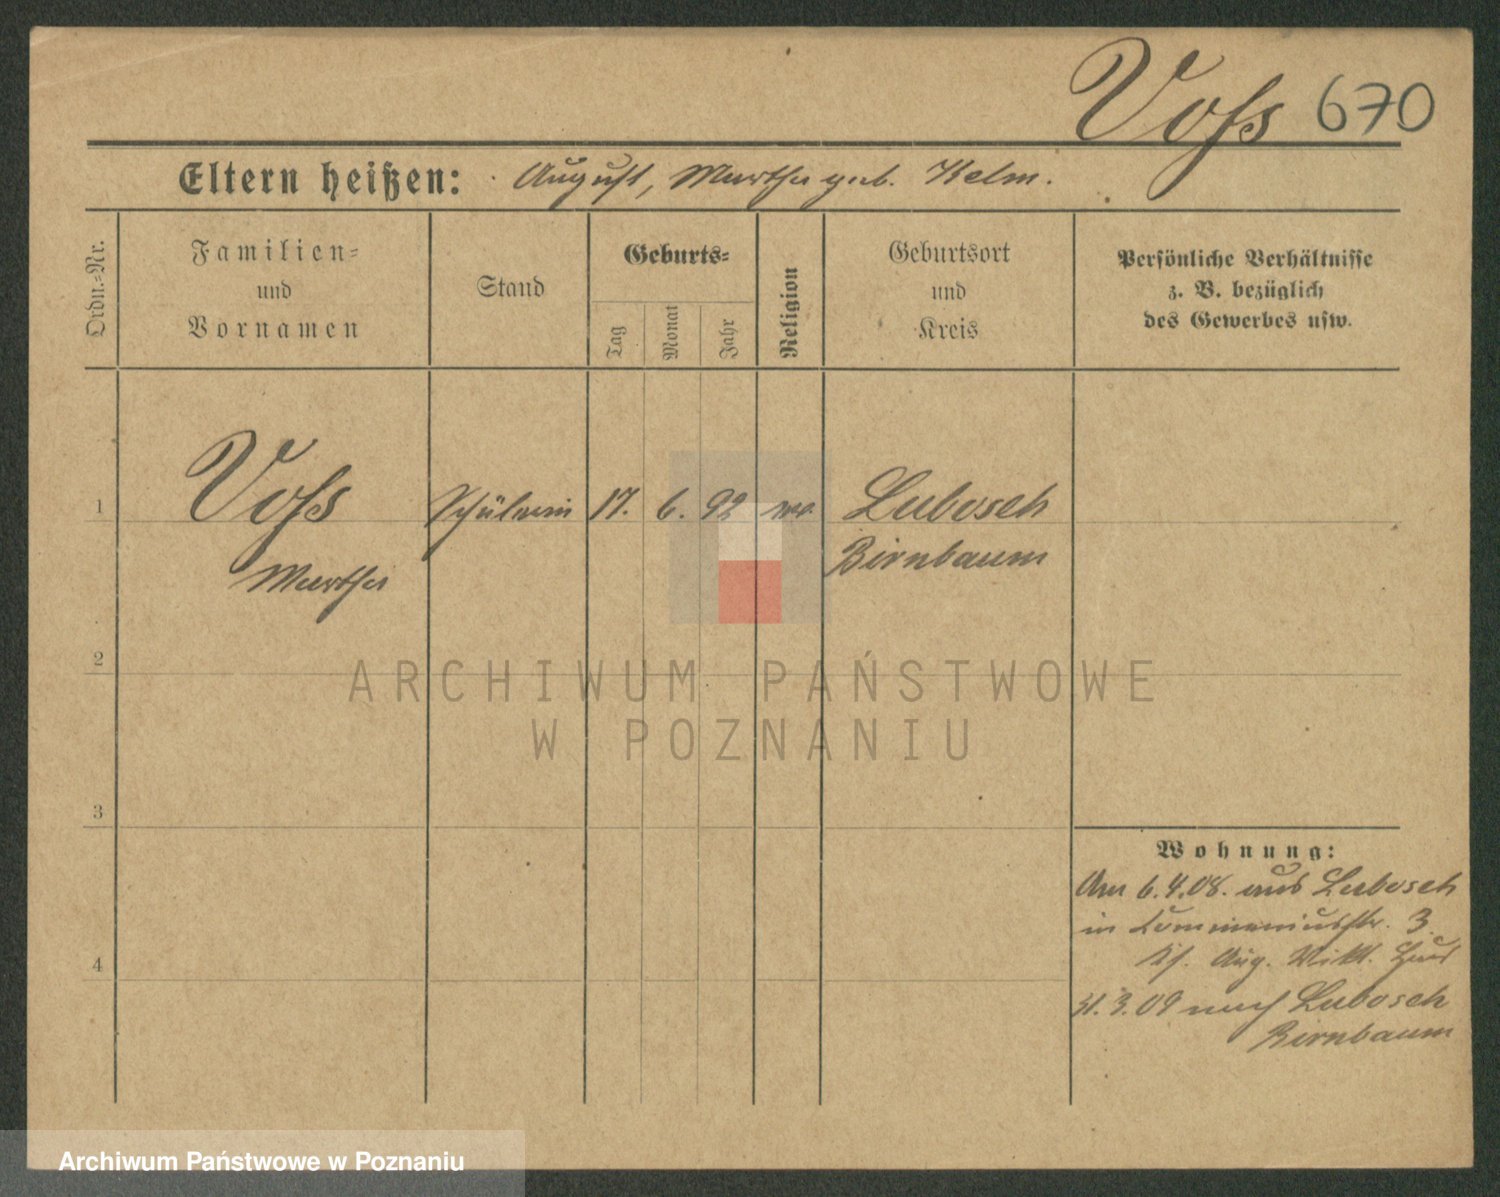 Voß 670
Eltern heißen: August, Martha geb. Kelm.
Ordn.-Nr.
Familien-
und
Vornamen
Stand
Geburts-
Tag
Monat
Jahr
Religion
Geburtsort
und
Kreis
Persönliche Verhältnisse
z. B. bezüglich
des Gewerbes usw.
1
Voß
Martha
Schülerin
17. 6. 92
Lubosch
Birnbaum
2
ARCHIWUM PAŃSTWOWE
W POZNANIU
3
4
Wohnung:
Am 6.4.08. aus Lubosch
in 3.
Aug. Vikt. Haus
31.3.09 nach Lubosch
Birnbaum
Archiwum Państwowe w Poznaniu